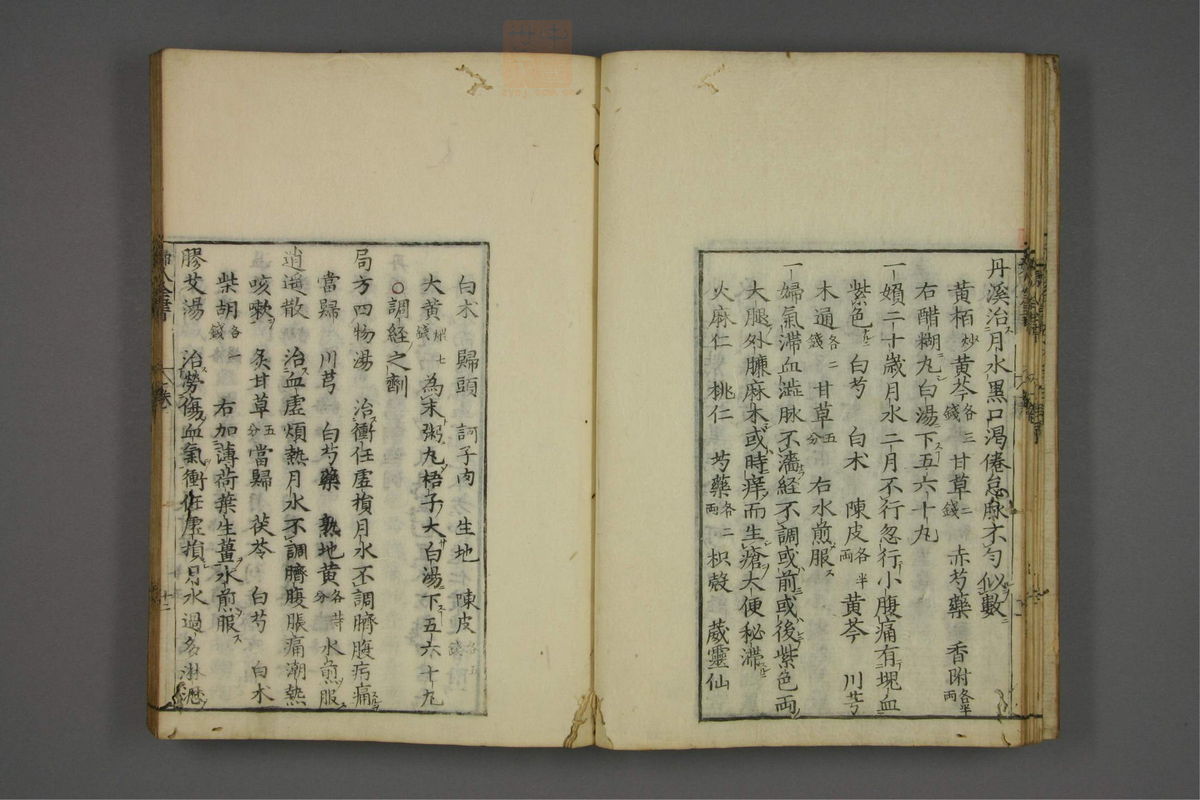 丹溪治月水黒口渇倦怠脉不勻似數
黄栢炒黄芩各三錢甘草二錢 赤芍藥 香附各半両
右醋糊丸白湯下五六十丸
一 㜲二十歳月水二月不行忽行小腹痛有塊血
紫色 白芍 白朮 陳皮各半両 黄芩 川芎
木通各二錢 甘草五分 右水煎服
一 婦氣滞血澁脉不濇経不調或前或後紫色両
大腿外臁麻木或時痒而生瘡大便秘滞
火麻仁 桃仁 芍藥各二両 枳殻 葳靈仙
白朮 歸頭 訶子肉 生地 陳皮各五錢
大黄煨七錢 為末粥丸梧子大白湯下五六十丸
○調経之劑
局方四物湯 治衝任虚損月水不調臍腹㽲痛
當歸 川芎 白芍藥 熟地黄各等分 水煎服
逍遥散 治血虚煩熱月水不調臍腹脹痛潮熱
咳嗽 炙甘草五分 當歸 茯苓 白芍 白朮
柴胡各一錢 右加薄荷葉生薑水煎服
膠艾湯 治勞傷血氣衝任虚損月水過多淋瀝